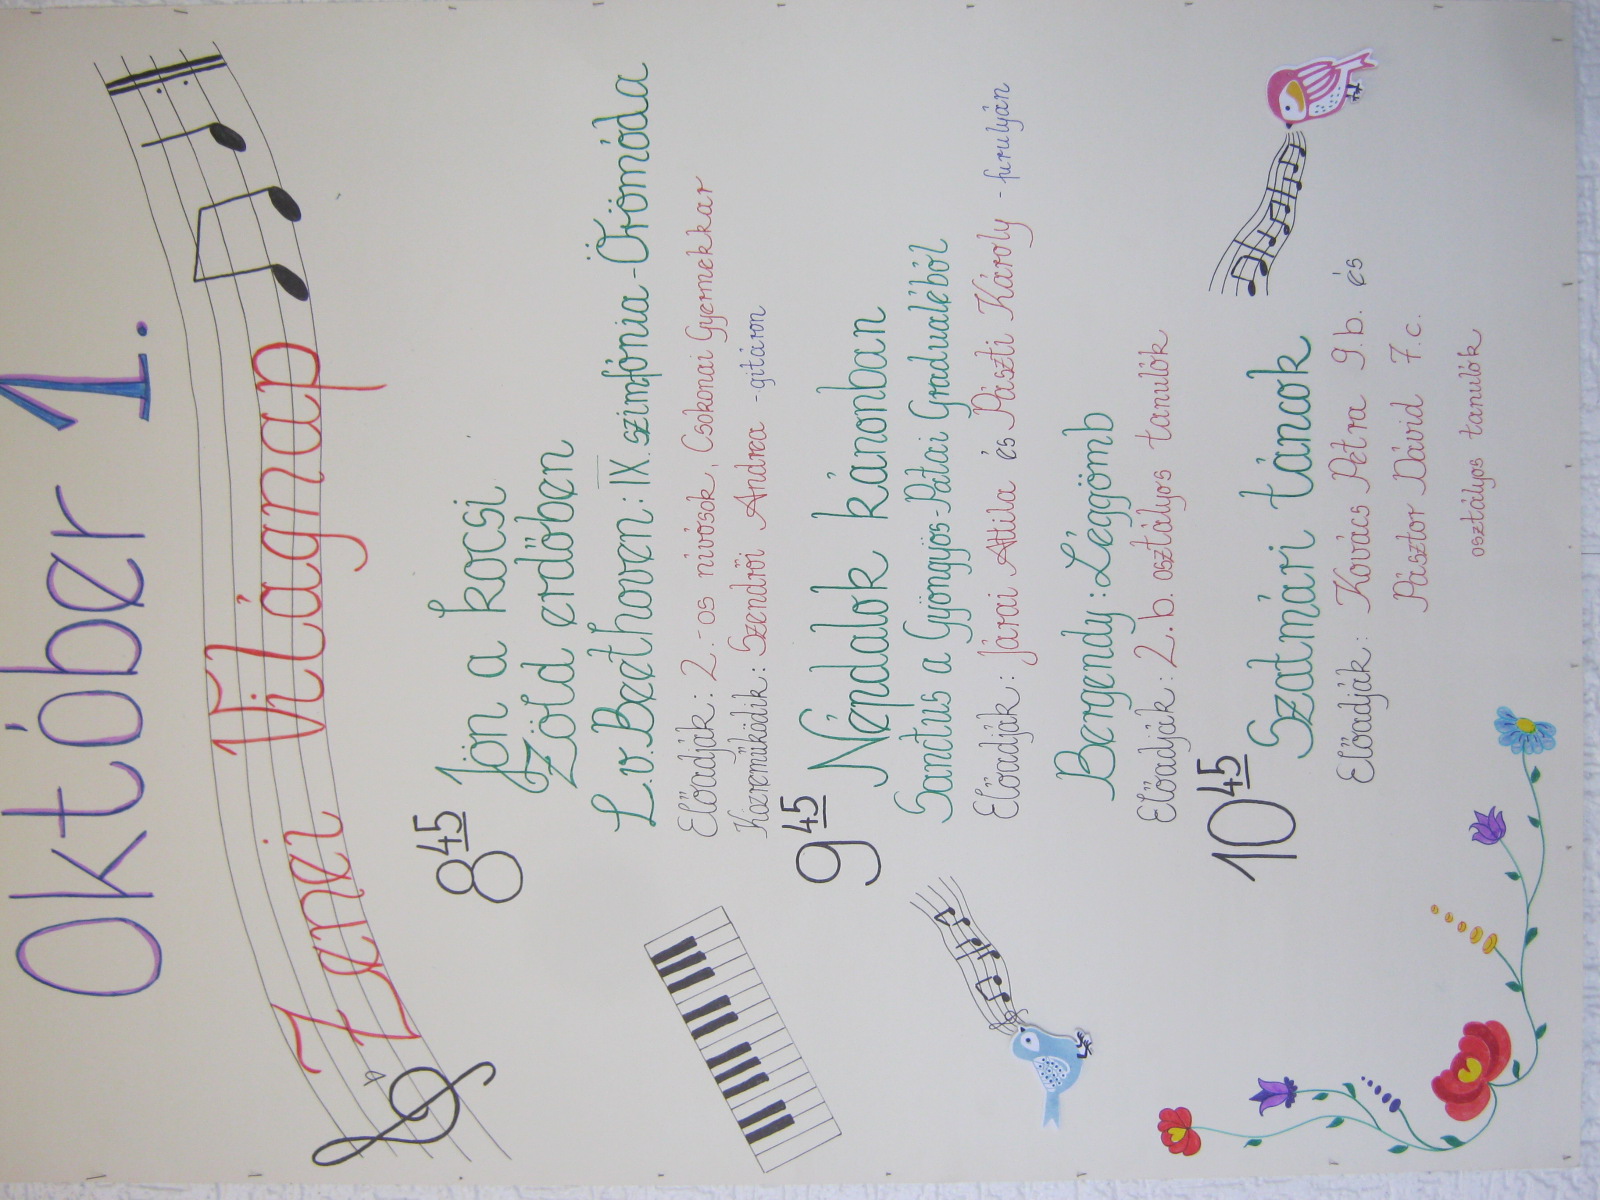 Október 1.
Zenei Világnap
8 45
Jön a kocsi
Zöld erdőben
L.v.Beethoven: IX. szimfónia-Örömóda
Előadják: 2.-os nívósok, Csokonai Gyermekkar
Közreműködik: Szendrői Andrea -gitáron
9 45
Népdalok kánonban
Sanctus a Gyöngyös-Patai Graduáléból
Előadják: Járai Attila és Pászti Károly -furulyán
Bergendy: Léggömb
Előadják: 2.b. osztályos tanulók
10 45
Szatmári táncok
Előadják: Kovács Petra 9.b. és
Pásztor Dávid 7.c.
osztályos tanulók